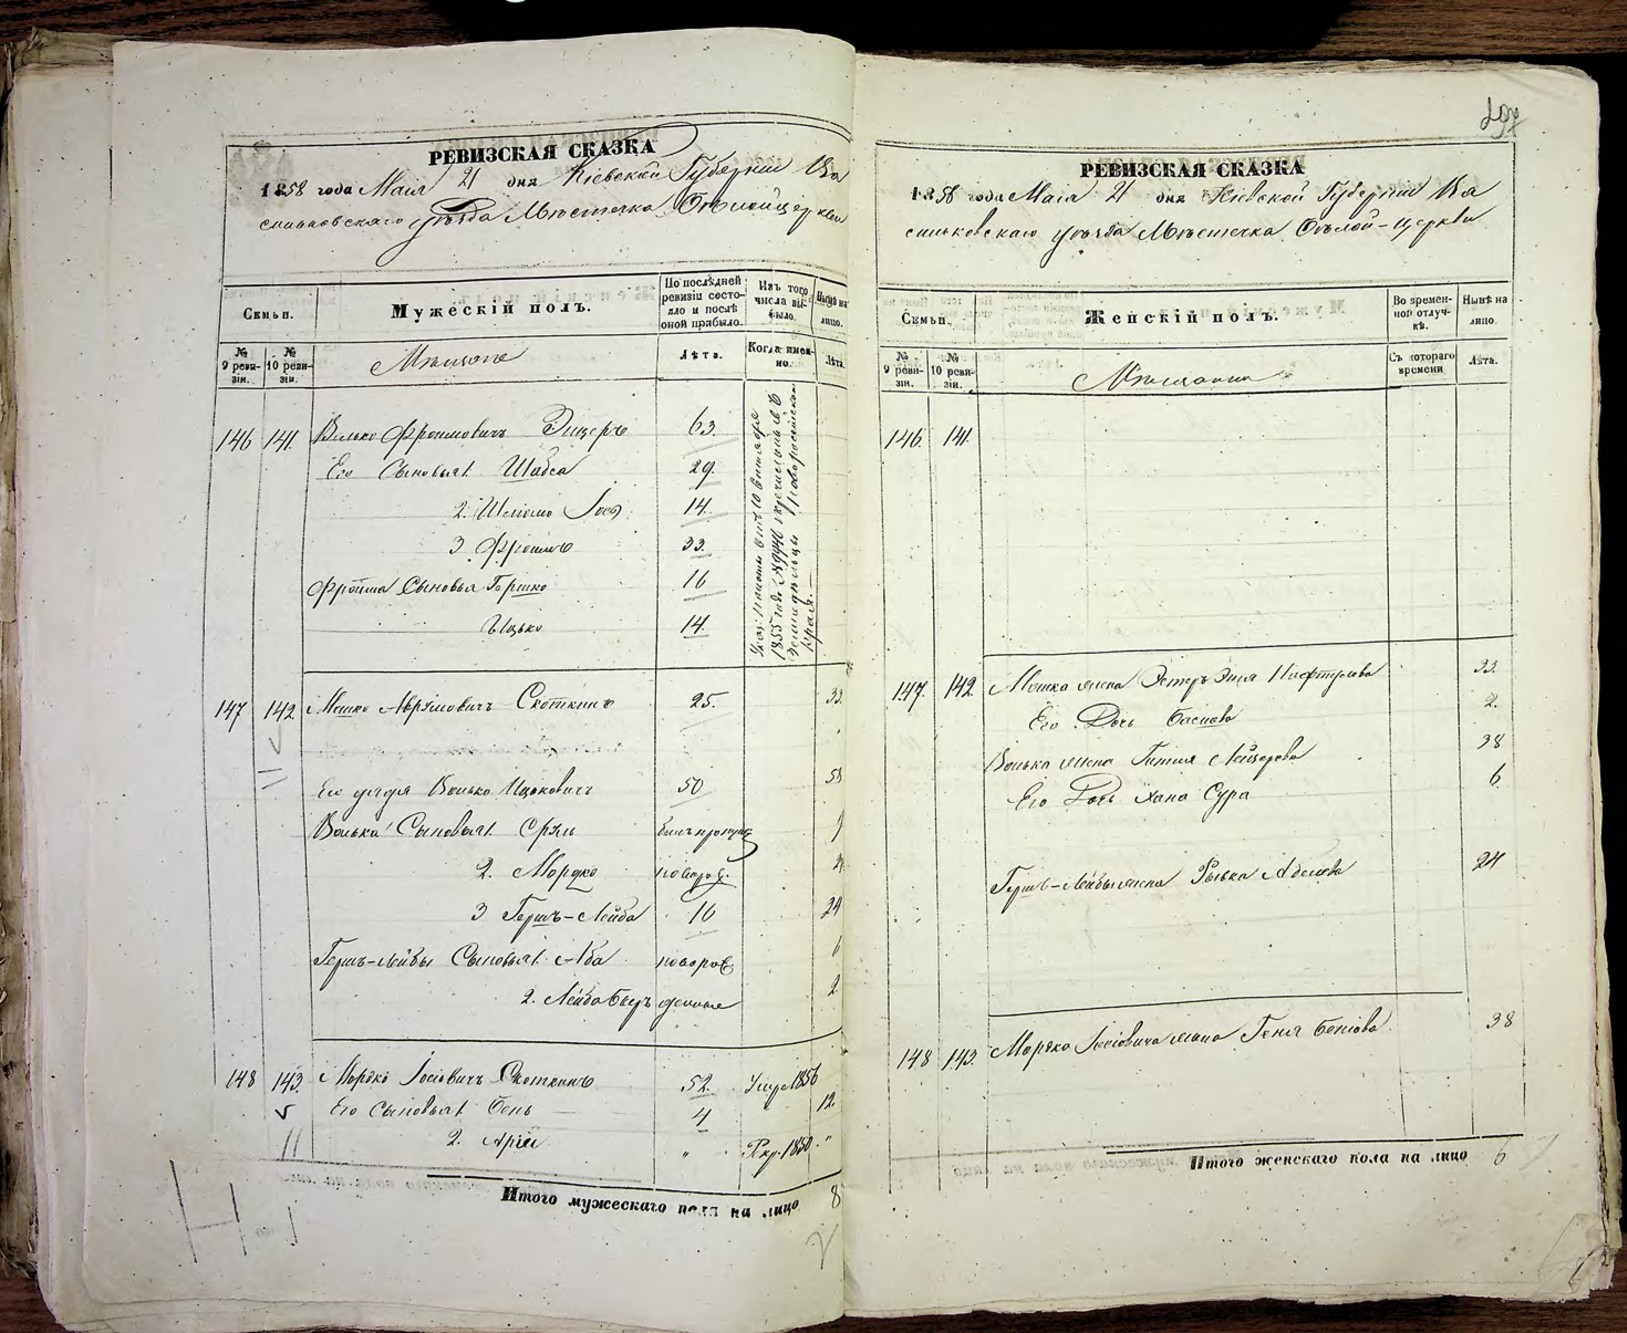 РЕВИЗСКАЯ СКАЗКА
1858 года Маія 21 дня Кіевской Губерніи Ва
сильковскаго уѣзда Мѣстечка Бѣлойцеркви
Семьи.
Мужескій полъ.
По послѣдней ревизіи состояло и послѣ оной прибыло.
Изъ того числа выбыло.
Нынѣ на лицо.
№ 9 ревизіи.
№ 10 ревизіи.
Мѣщане
Лѣта.
Когда именно.
Лѣта.
146 141. Волько Фроимовичъ 63.
Его Сыновья 1. Шабса 29.
2. Шлiомо Іось 14.
3 Фроимъ 33.
Фройма Сыновья Гершко 16
Ицько 14.
1855 года № перечислены въ
Земледѣльцы Новороссійскаго
Края.
147 142. Мошко Аврумовичъ Скоткинъ 25. 33.
Его дядя Волько Ицковичъ 50 58
Волька Сыновья 1. Сруль былъ пропущ.
2. Мордко новорож.
3 Гершъ-Лейба 16 24
Гершъ-Лейбы Сыновья 1. Аба новорож. 6
2. Лейба Бецъ 2
148 143. Мордко Іосіовичъ Скоткинъ 52. Умре 1856
Его Сыновья 1. Бень 4 12.
2. Арія " Рекр. 1850 "
Итого мужескаго пола на лицо 8
РЕВИЗСКАЯ СКАЗКА
1858 года Маія 21 дня Кіевской Губерніи Ва
сильковскаго уѣзда Мѣстечка Бѣлой-Церкви
Семьи.
Женскій полъ.
Во временной отлучкѣ.
Нынѣ на лицо.
№ 9 ревизіи.
№ 10 ревизіи.
Мѣщанки
Съ котораго времени
Лѣта.
146. 141.
147. 142. Мошка жена Эстеръ Нафтулова 33.
Его Дочь Баснова 2.
Волька жена Гитля Лейзерова 38
Его Дочь Хана Сура 6.
Гершъ-Лейбы жена Рывка Абелева 24
148 143. Мордка Іосіовича жена Геня Беніова 38
Итого женскаго пола на лицо 6